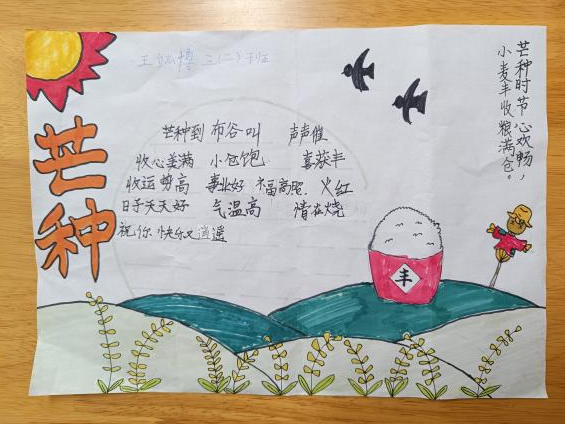 王斌博 三(二)班
芒种
芒种到 布谷叫 声声催
收心美满 小仓饱 喜获丰
收运势高 事业好 福高照 火红
日子天天好 气温高 情在烧
祝你 快乐又逍遥
芒种时节心欢畅，
小麦丰收粮满仓。
丰